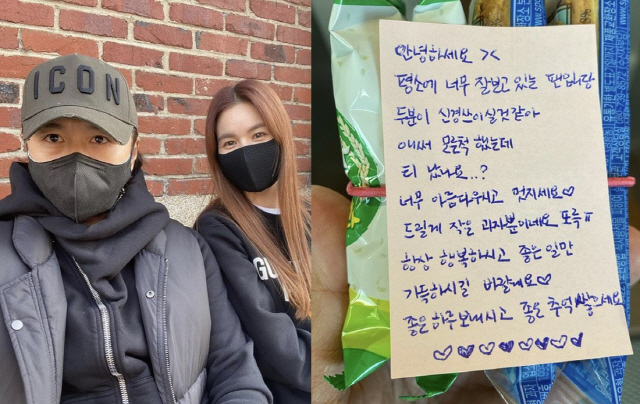 ICON
GU
안녕하세요 ><
평소에 너무 잘보고 있는 팬입니당
두분이 신경쓰이실것 같아
애써 모른척 했는데
티 났나요...?
너무 아름다우시고 멋지세요♡
드릴게 작은 과자뿐이네요 또륵ㅠ
항상 행복하시고 좋은일만
가득하시길 바랄게요♡
좋은하루보내시고 좋은 추억 쌓으세요
♡♡♡♡♡♡♡♡